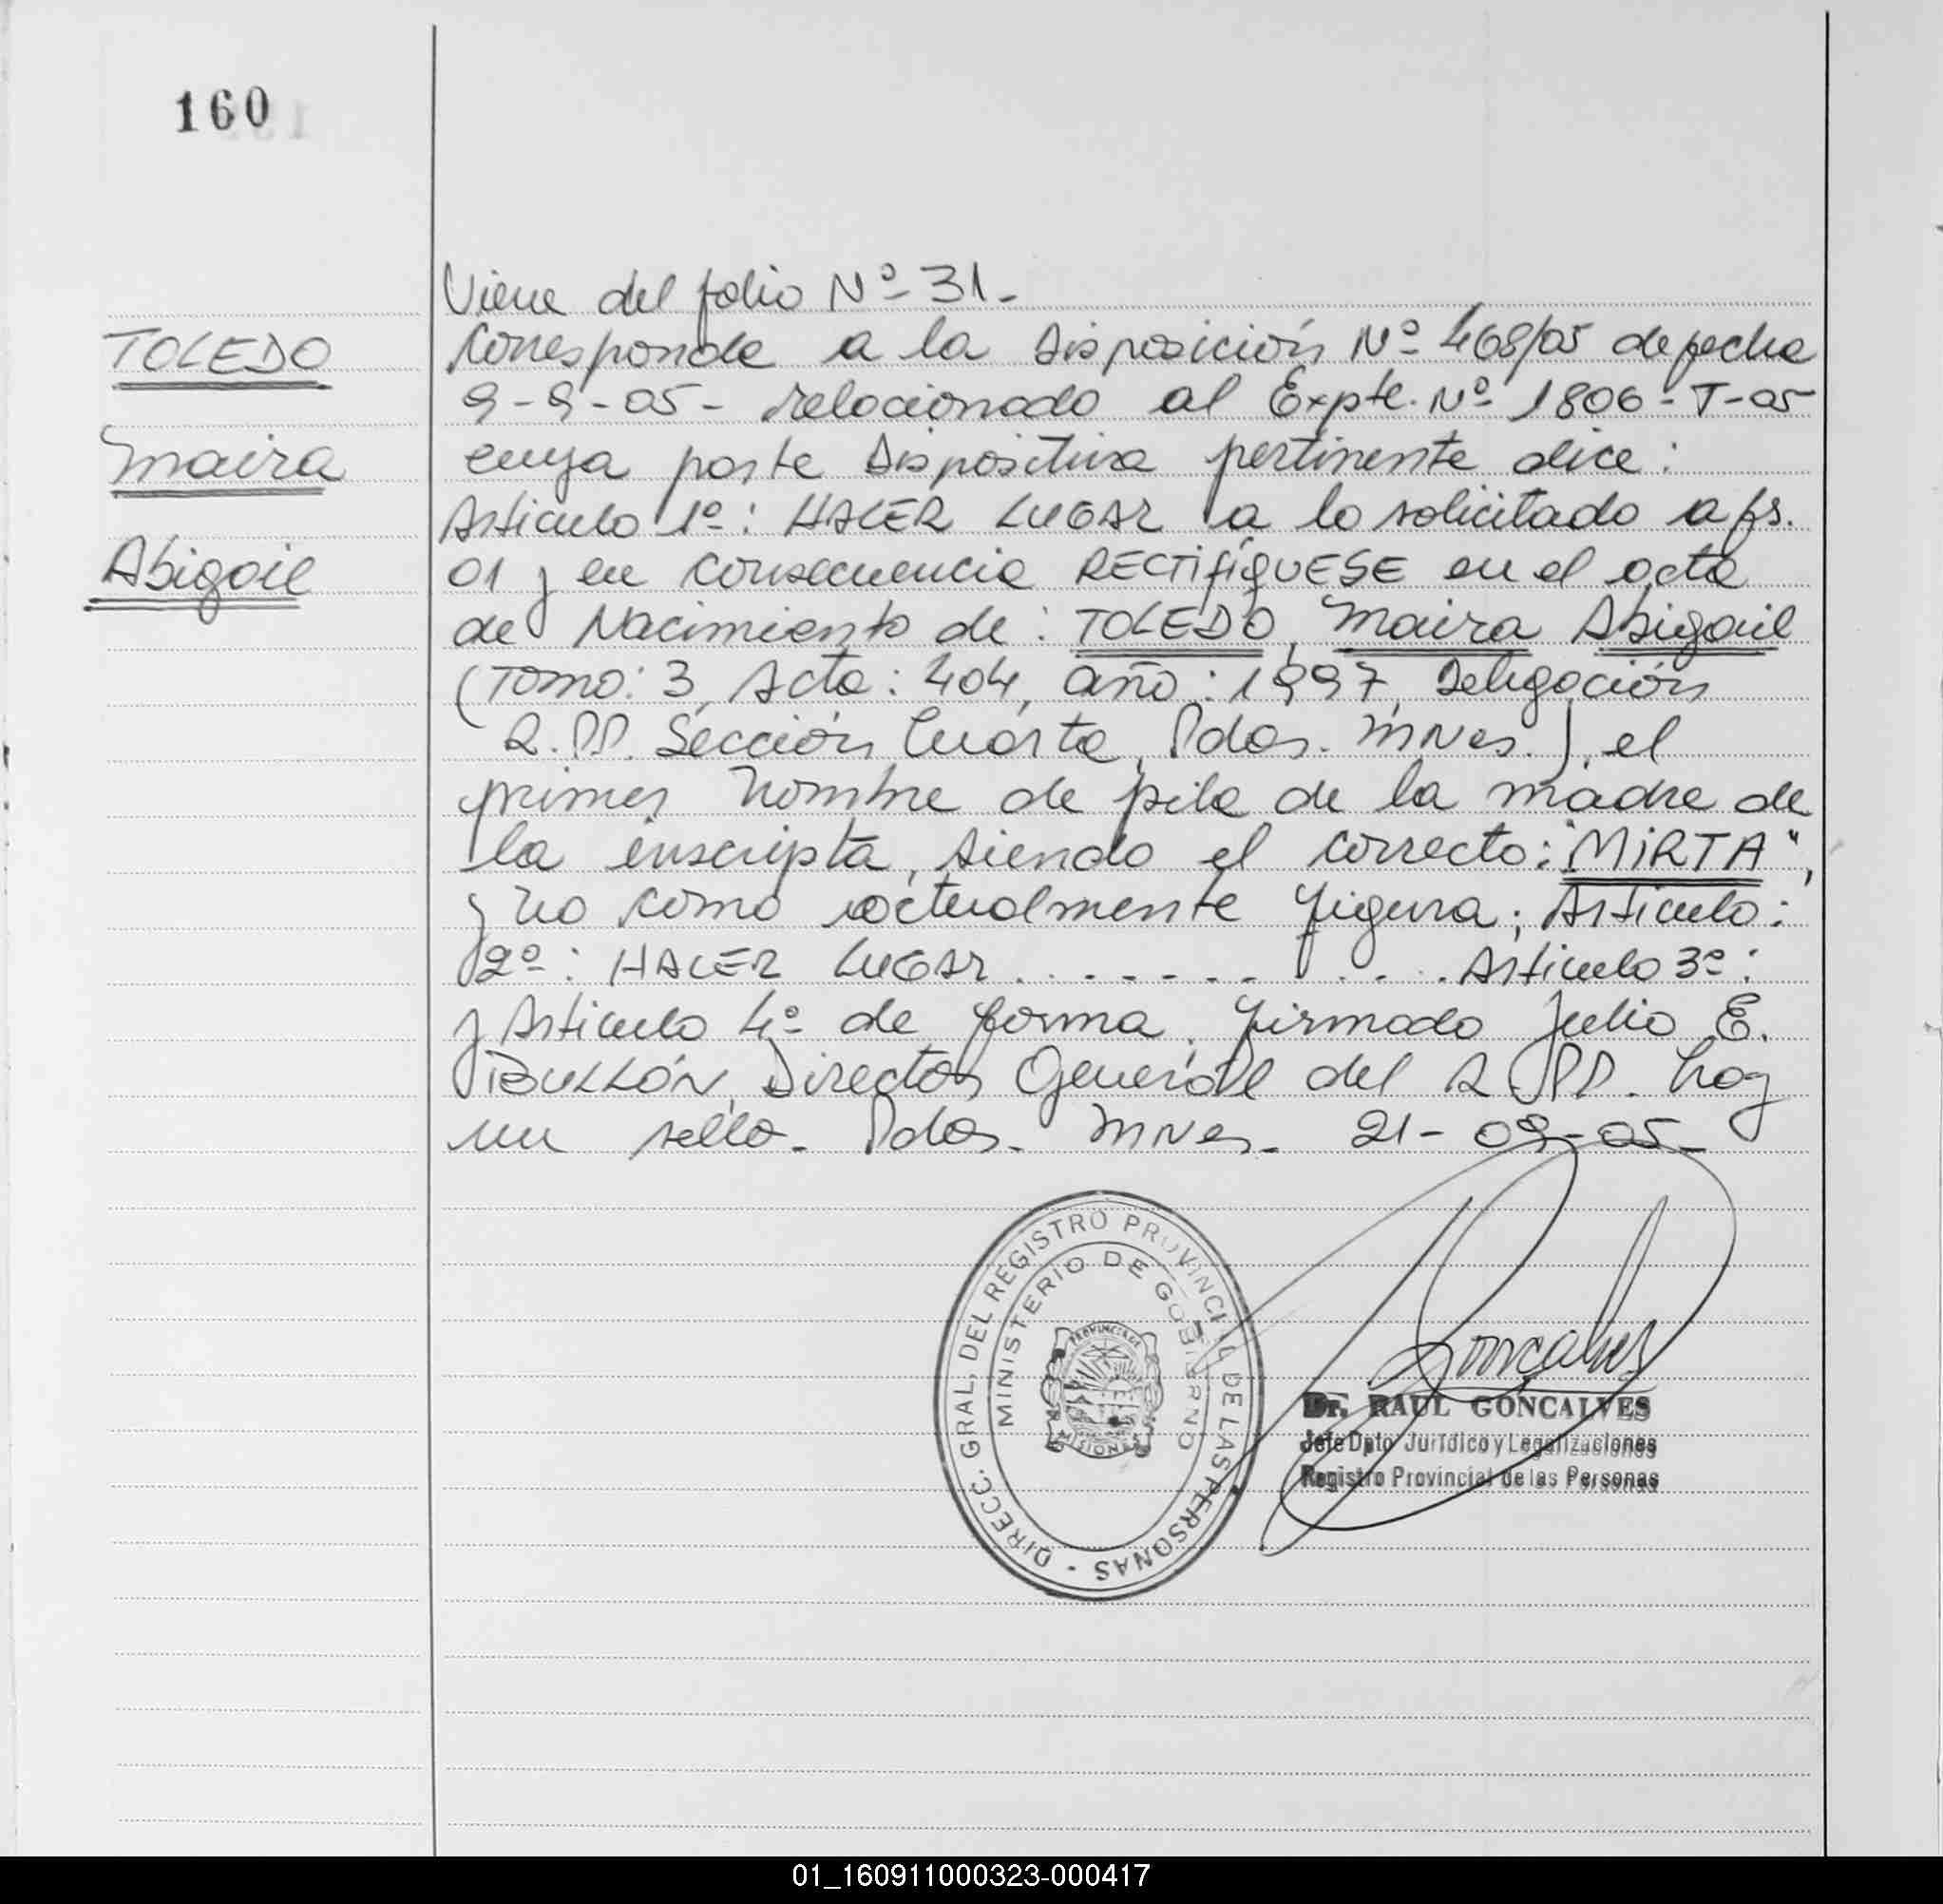 160
TOLEDO
Maira
Abigail
Viene del folio Nº 31.
Corresponde a la Disposición Nº 468/05 de fecha
9-9-05- relacionado al Expte. Nº 1806-T-05
cuya parte Dispositiva pertinente dice:
Articulo 1º: HACER LUGAR a lo solicitado a fs.
01 y en consecuencia RECTIFÍQUESE en el acta
de Nacimiento de: TOLEDO, Maira Abigail
(Tomo: 3, Acta: 404, año: 1997, Delegación
R.PP. Sección Cuarta, Pdas. Mnes.), el
primer nombre de pila de la madre de
la inscripta, siendo el correcto: "MIRTA",
y no como actualmente figura; Articulo:
2º: HACER LUGAR . . . - - - - . . . . Articulo 3º:
y Articulo 4º de forma. firmado Julio E.
BULLÓN, Director General del R.PP. hay
un sello. Pdas. Mnes. 21-09-05-
DIRECC. GRAL. DEL REGISTRO PROVINCIAL DE LAS PERSONAS -
MINISTERIO DE GOBIERNO
PROVINCIA DE
MISIONES
Goncalves
Dr. RAUL GONCALVES
Jefe Dpto Jurídico y Legalizaciones
Registro Provincial de las Personas
01_160911000323-000417